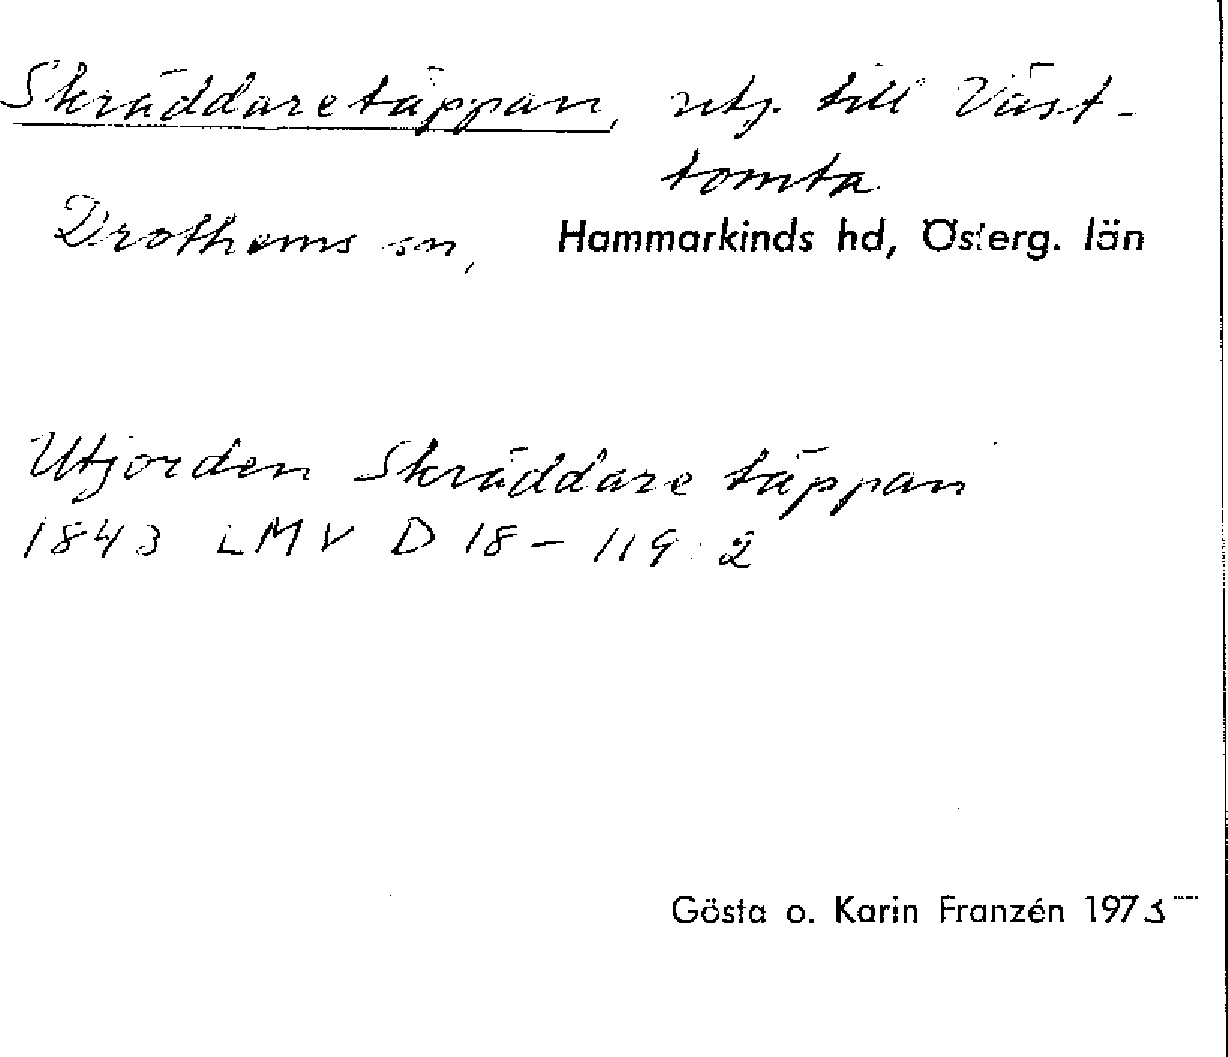 Skräddaretäppan, utj. till Väst-
tomta
Drothems sn, Hammarkinds hd, Österg. län
Utjorden Skräddare täppan
1843 LMV D 18 - 119:2
Gösta o. Karin Franzén 1975